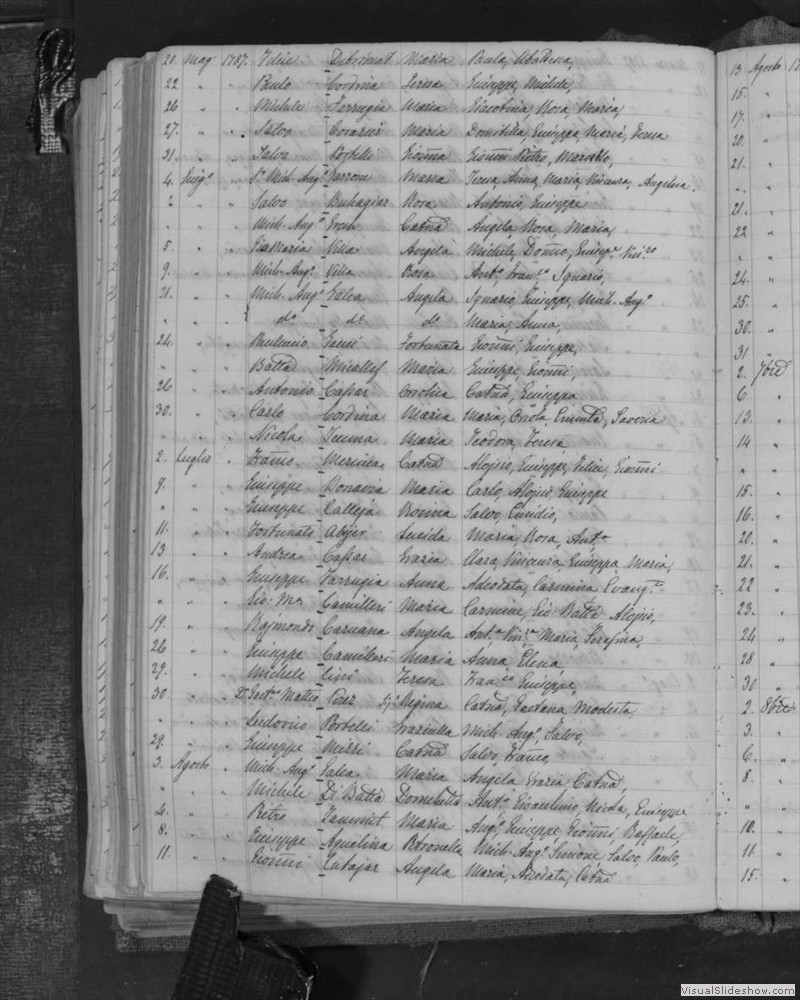 20. Mag 1787. Felice Debrincat Maria Paula, Ubaldesca,
22 " " Paulo Cordina Teresa Giuseppe, Michele,
26 " " Michele Farrugia Maria Giacobina, Rosa, Maria,
27. " " Salvo Maria Domitilla, Giuseppa, Maria, Teresa
31. " " Salvo Portelli Gioña Gioñi Pietro, Marcello,
4. Giug.o " Sr Mich. Ang.o Maria Teresa, Anna, Maria, Vincenza, Angelina.
" " Salvo Buhagiar Rosa Antonio, Giuseppe
" " Mich. Ang.o Grech Catña Angela, Rosa, Maria,
5. " " Villa Angela Michele, Doñco, Giusep.e Vin.zo
9. " " Mich. Ang.o Villa Rosa Ant.o Fran.co Ignazio,
21. " " Mich. Ang.o Galea Angela Ignazio, Giuseppe, Mich. Ang.o
" " " do do do Maria, Anna,
24. " " Paulucio Fortunata Gioñi, Giuseppe,
" " " Batta Micallef Maria Giuseppe, Gioñi,
26 " " Antonio Cassar Catña, Giuseppa
30. " " Carlo Cordina Maria Maria, Saveria
" " " Nicola Maria Teodora, Teresa
2. Luglio " Frañco Mercieca Catña Alojsio, Giuseppe, Felice, Gioñi
9. " " Giuseppe Bonavia Maria Carlo, Alojsio, Giuseppe
" " " Giuseppe Calleja Rosina Salvo,
11. " " Fortunato Lucida Maria Rosa, Ant.a
13 " " Andrea Cassar Grazia Clara, Vincenza, Giuseppa, Maria,
16. " " Giuseppe Farrugia Anna Adeodata, Carmina, Evang.ta
" " " Gio: Ma Camilleri Maria Carmine, Gio: Batta Alojsio,
19. " " Rajmondo Caruana Angela Ant.o Vin.zo Maria, Serafina,
26 " " Giuseppe Camilleri Maria Anna, Elena
29. " " Michele Cini Teresa Fran.co Giuseppe,
30. " " Dr Matteo Regina Catña, Gaetana, Modesta,
" " " Ludovico Portelli Graziulla Mich. Ang.o, Salvo,
29. " " Giuseppe Catña Salvo, Frañco,
3. Agosto " Mich. Ang.o Galea Maria Angela, Grazia, Catña,
" " " Michele Di Batta Ant.o Nicola, Giuseppe
4. " " Pietro Zammit Maria Ang.o, Giuseppe, Gioñi, Raffaele,
8. " " Giuseppe Aquilina Petronella Mich. Ang.o Simione, Salvo, Paulo,
11. " " Gioñi Cutajar Angela Maria, Adeodata, Catña
13 Agosto
15. "
17. "
20. "
21. "
" "
21. "
22 "
" "
24. "
25. "
30. "
31 "
2. 7bre
6. "
13. "
14 "
" "
15. "
16. "
20. "
21. "
22 "
23. "
24 "
28 "
30 "
2. 8bre
3. "
6. "
8. "
" "
10. "
11. "
15. "
VisualSlideshow.com